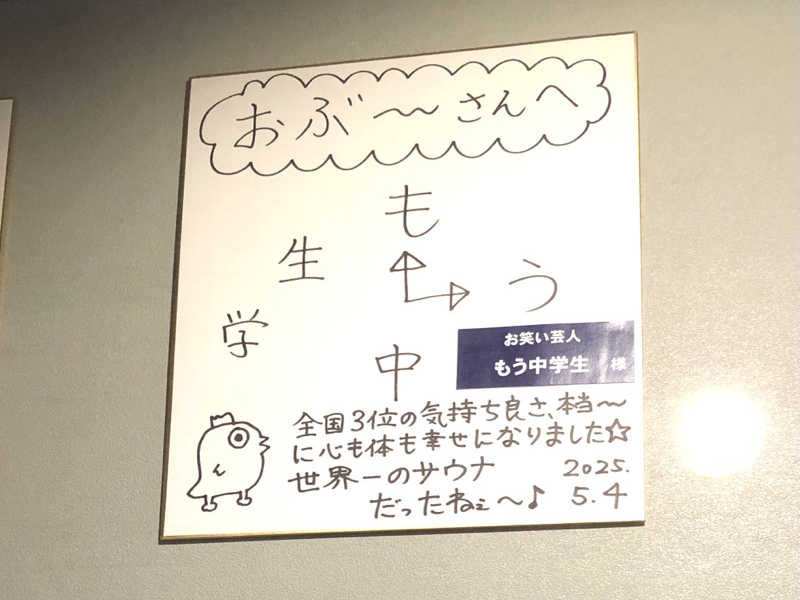 おぶ〜さんへ
も
う
中
学
生
お笑い芸人
もう中学生 様
全国3位の気持ち良さ、本当〜
に心も体も幸せになりました☆
世界一のサウナ
だったねぇ〜♪
2025.
5.4